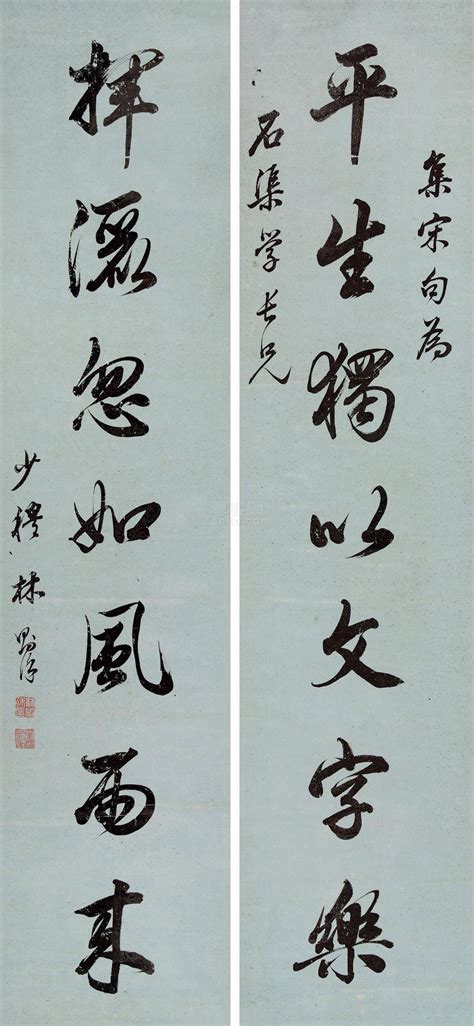 集宋句為
平生獨以文字樂
石渠学長兄
揮灑忽如風雨來
少穆林則徐